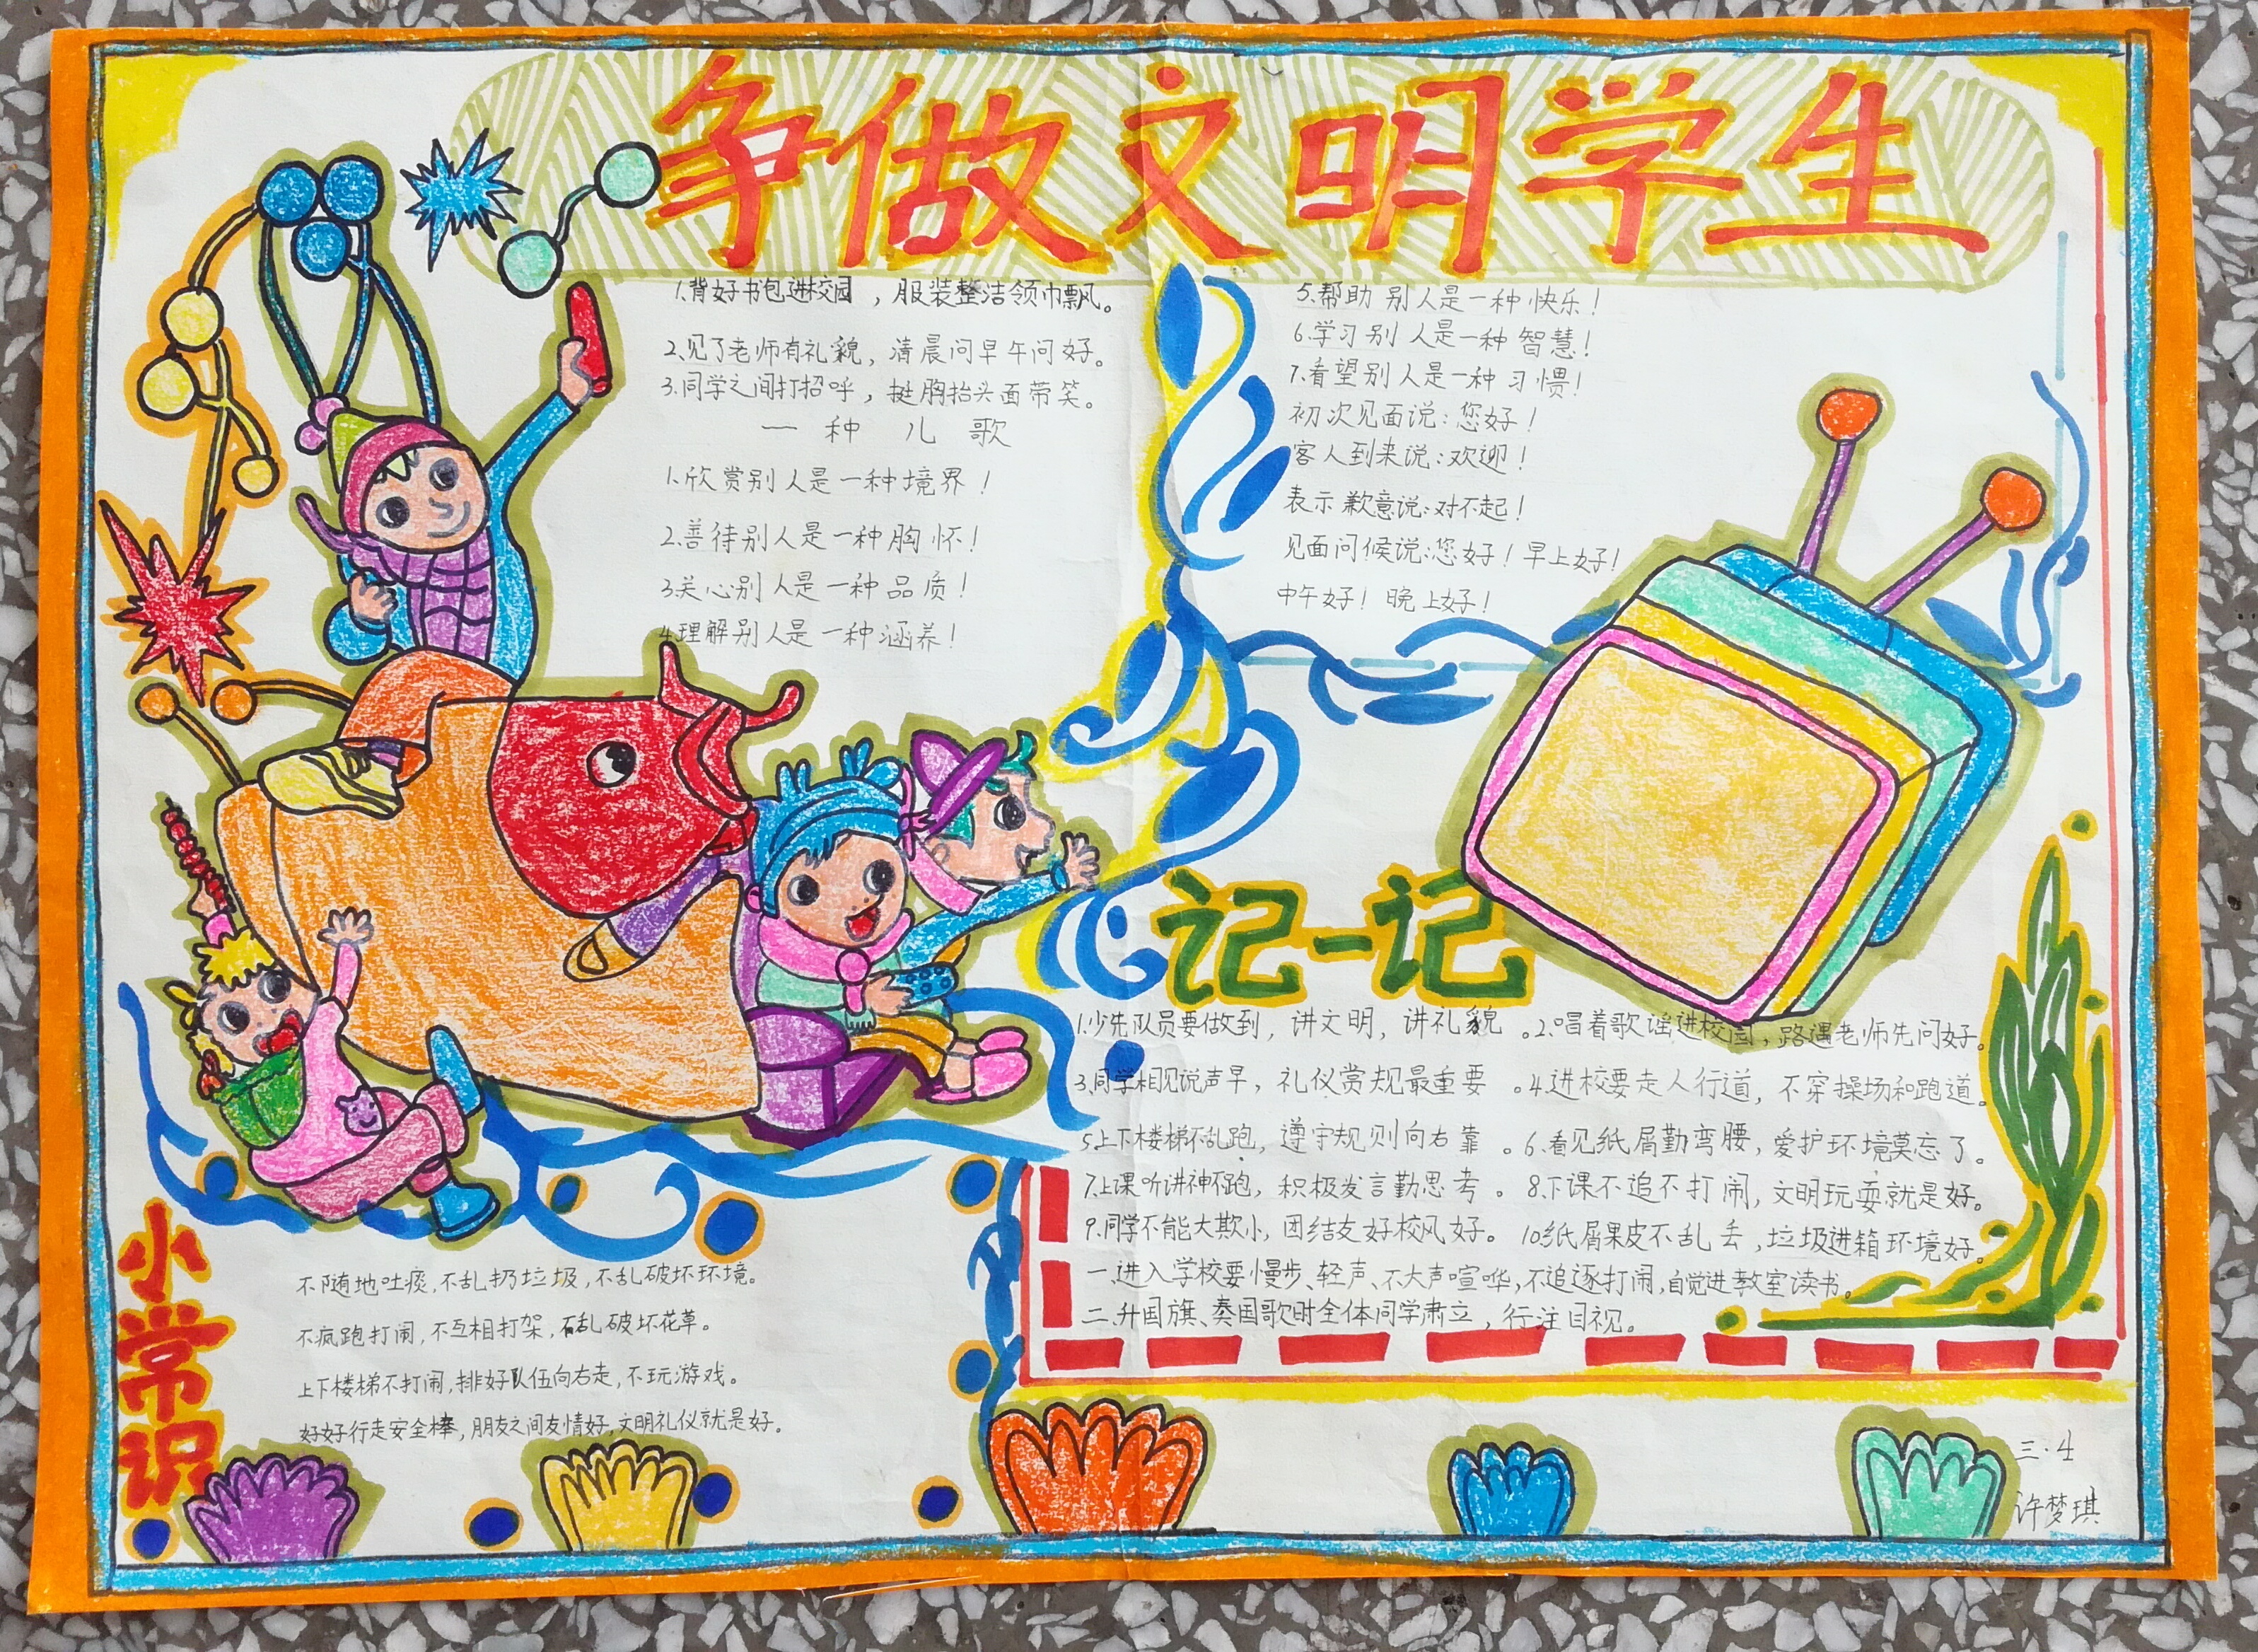 争做文明学生
1、背好书包进校园，服装整洁领巾飘。
2、见了老师有礼貌，清晨问早午问好。
3、同学之间打招呼，挺胸抬头面带笑。
一种儿歌
1、欣赏别人是一种境界！
2、善待别人是一种胸怀！
3、关心别人是一种品质！
4、理解别人是一种涵养！
5、帮助别人是一种快乐！
6、学习别人是一种智慧！
7、看望别人是一种习惯！
初次见面说：您好！
客人到来说：欢迎！
表示歉意说：对不起！
见面问候说：您好！早上好！
中午好！晚上好！
记一记
1、少先队员要做到，讲文明，讲礼貌。2、唱着歌谣进校园，路遇老师先问好。
3、同学相见说声早，礼仪赏规最重要。4、进校要走人行道，不穿操场和跑道。
5、上下楼梯不乱跑，遵守规则向右靠。6、看见纸屑勤弯腰，爱护环境莫忘了。
7、上课听讲神不跑，积极发言勤思考。8、下课不追不打闹，文明玩耍就是好。
9、同学不能大欺小，团结友好校风好。10、纸屑果皮不乱丢，垃圾进箱环境好。
一、进入学校要慢步、轻声、不大声喧哗，不追逐打闹，自觉进教室读书。
二、升国旗、奏国歌时全体同学肃立，行注目视。
小常识
不随地吐痰，不乱扔垃圾，不乱破坏环境。
不疯跑打闹，不互相打架，不乱破坏花草。
上下楼梯不打闹，排好队伍向右走，不玩游戏。
好好行走安全棒，朋友之间友情好，文明礼仪就是好。
三·4
许梦琪